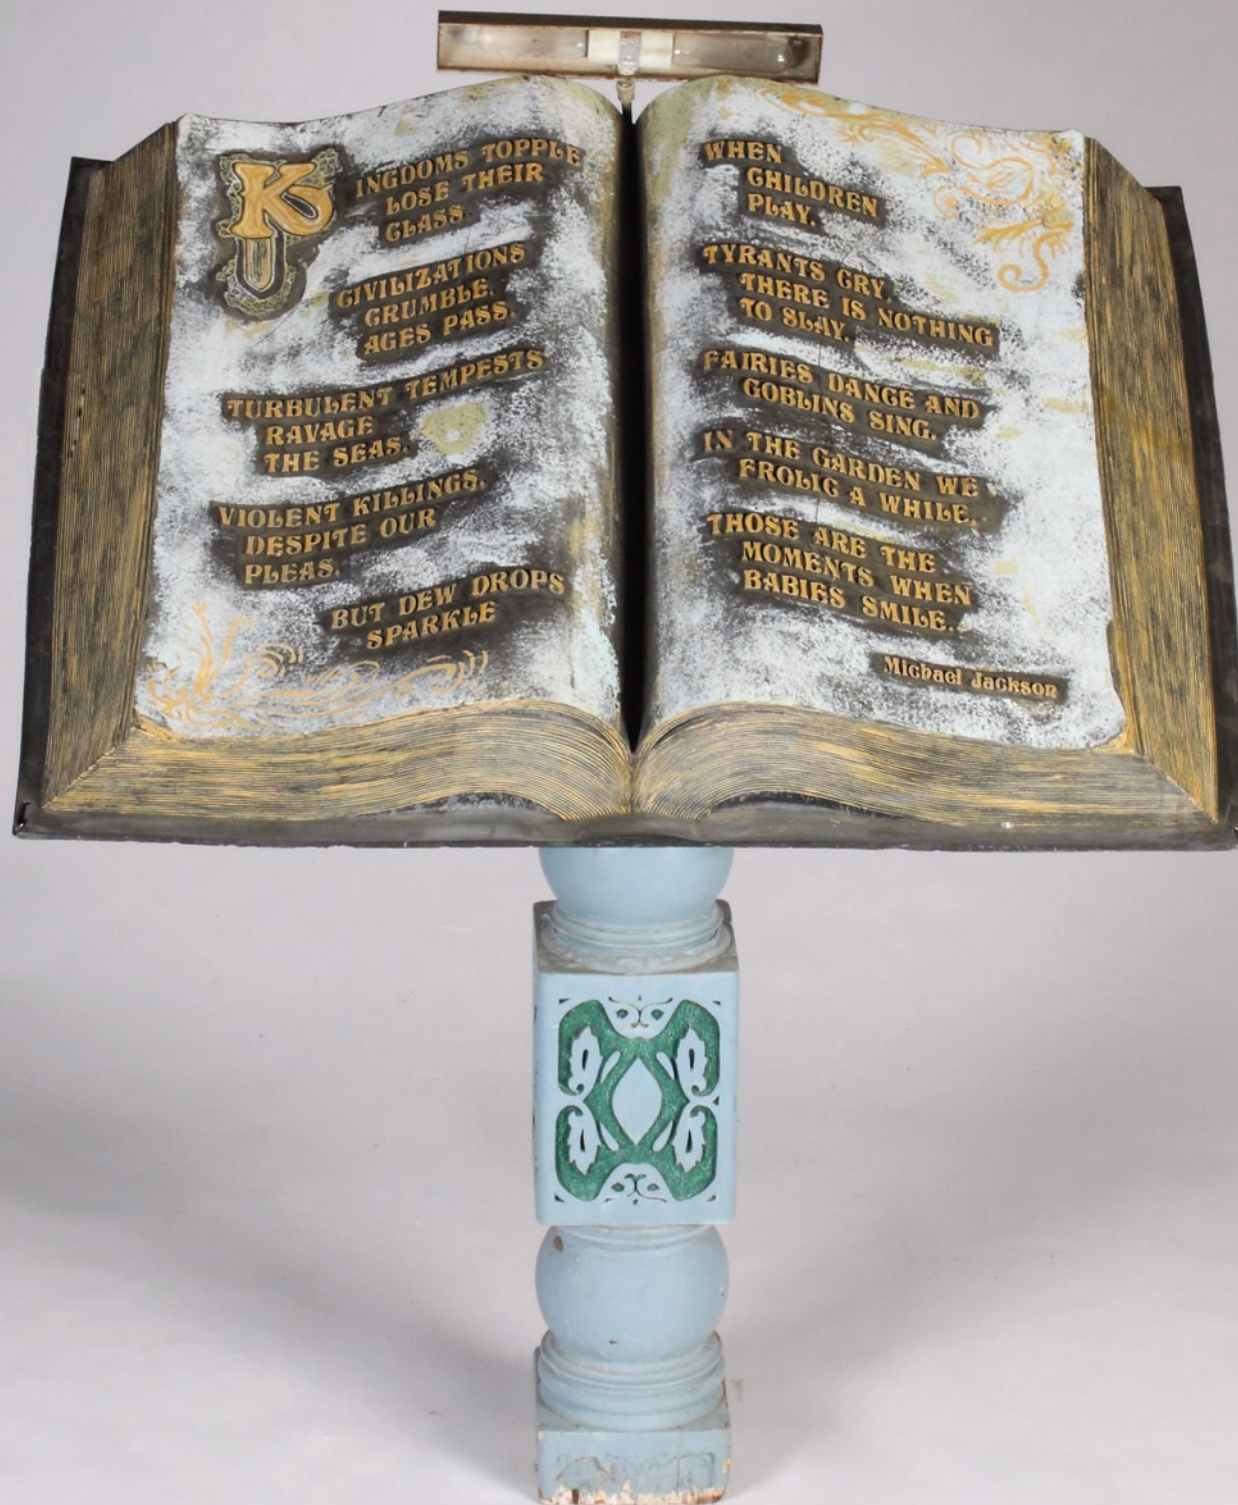 KINGDOMS TOPPLE
LOSE THEIR
CLASS.
CIVILIZATIONS
CRUMBLE,
AGES PASS.
TURBULENT TEMPESTS
RAVAGE
THE SEAS.
VIOLENT KILLINGS,
DESPITE OUR
PLEAS.
BUT DEW DROPS
SPARKLE
WHEN
CHILDREN
PLAY.
TYRANTS CRY,
THERE IS NOTHING
TO SLAY.
FAIRIES DANCE AND
GOBLINS SING.
IN THE GARDEN WE
FROLIC A WHILE.
THOSE ARE THE
MOMENTS WHEN
BABIES SMILE.
Michael Jackson